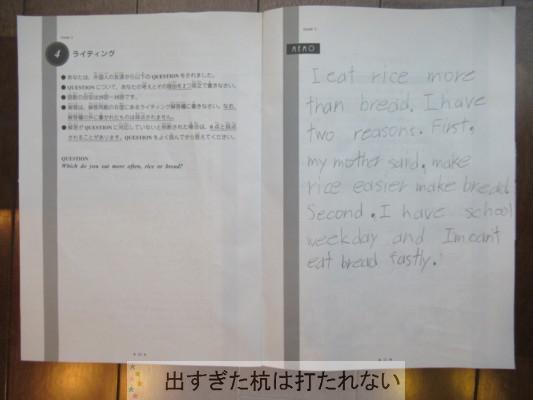 4 ライティング
● あなたは、外国人の友達から以下の QUESTION をされました。
● QUESTION について、あなたの考えとその理由を2つ英文で書きなさい。
● 語数の目安は25語~35語です。
● 解答は、解答用紙のB面にあるライティング解答欄に書きなさい。なお、
解答欄の外に書かれたものは採点されません。
● 解答が QUESTION に対応していないと判断された場合は、0点と採点
されることがあります。QUESTION をよく読んでから答えてください。
QUESTION
Which do you eat more often, rice or bread?
MEMO
I eat rice more
than bread. I have
two reasons. First,
my mother said, make
rice easier make bread
Second, I have school
weekday and I'm can't
eat bread fastly.
出すぎた杭は打たれない